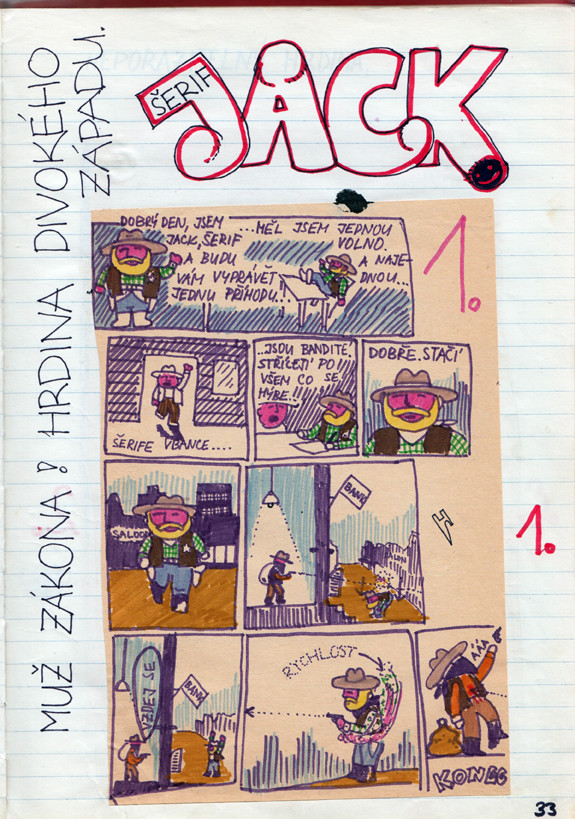 ŠERIF
JACK.
MUŽ ZÁKONA? HRDINA DIVOKÉHO
ZÁPADU.
1.
DOBRÝ DEN, JSEM
JACK, ŠERIF
A BUDU
VÁM VYPRÁVĚT
JEDNU PŘÍHODU...
...MĚL JSEM JEDNOU
VOLNO.
A NAJE-
DNOU...
ŠERIFE V BANCE....
...JSOU BANDITÉ,
STŘÍLEJÍ PO
VŠEM CO SE
HÝBE..!!
DOBŘE. STAČÍ
SALOON
BANK
1.
VZDEJ SE
BANK
RYCHLOST
ÁÁÁ
KONEC
33